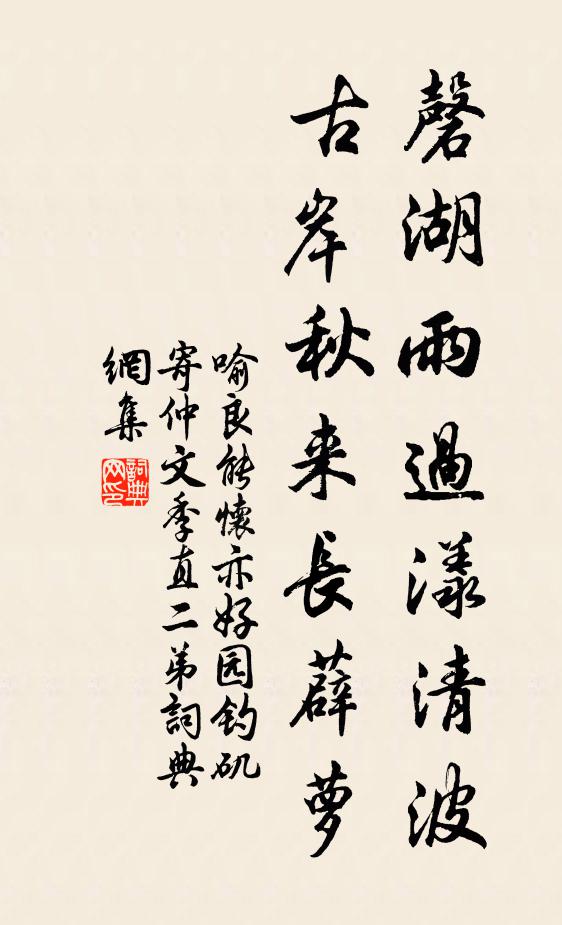 磬湖雨過漾清波
古岸秋来長薜萝
喻良能懷亦好园钓矶
寄仲文季直二弟詞典
網集
詞典
网印